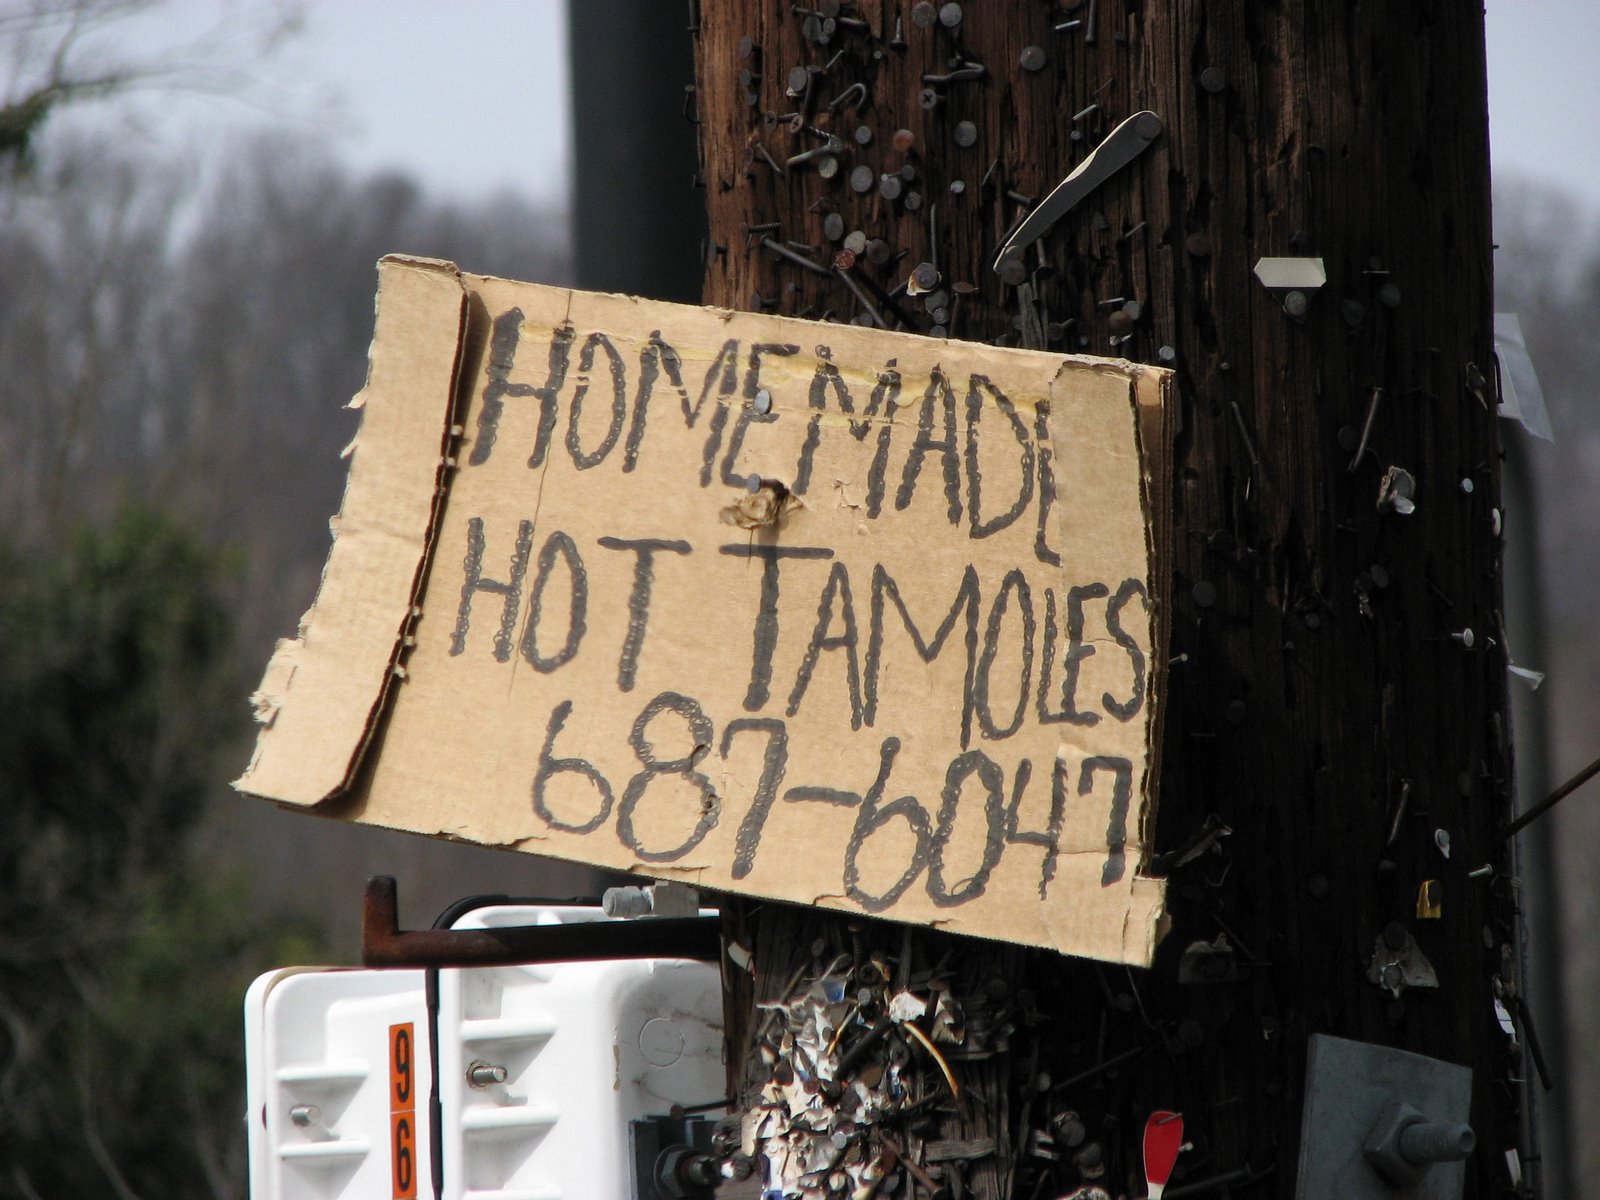 HOMEMADE
HOT TAMOLES
687-6047
96